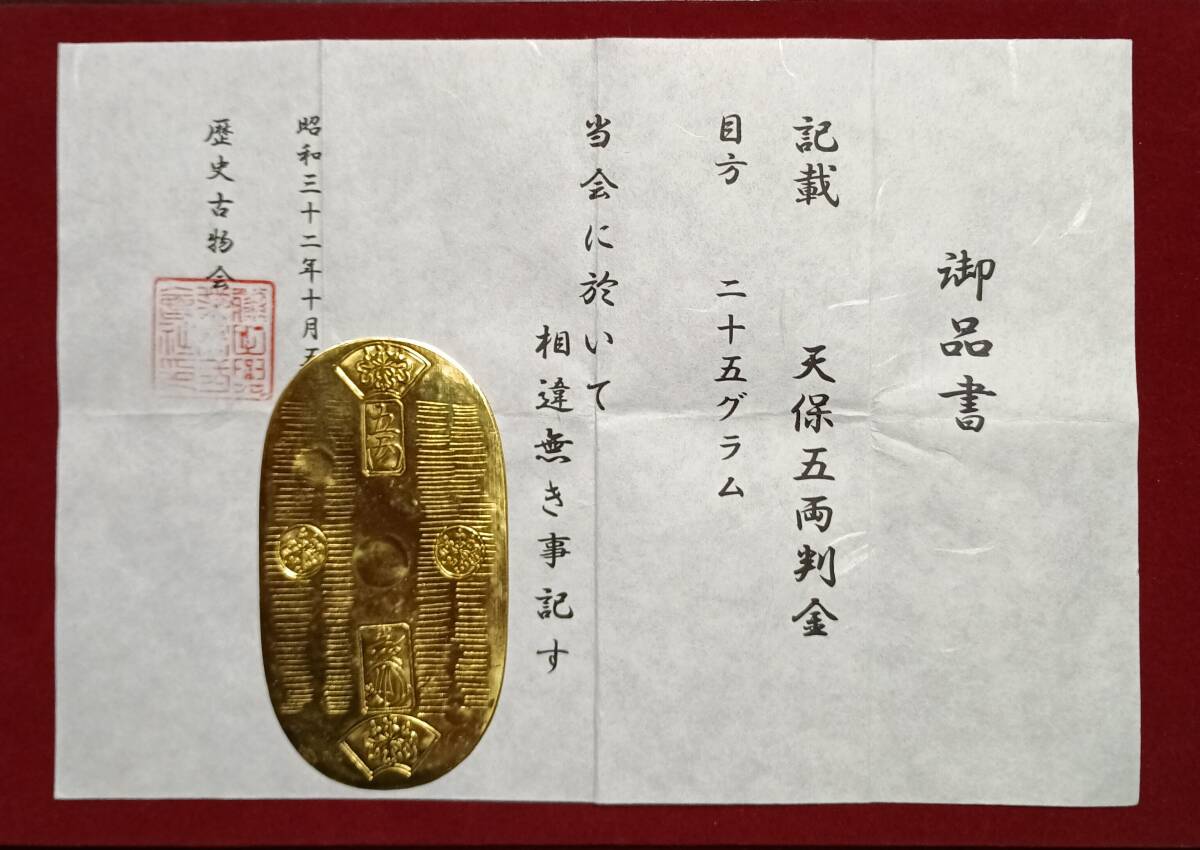 御品書
記載 天保五両判金
目方 二十五グラム
当会に於いて
相違無き事記す
昭和三十二年十月五
歴史古物会
五両